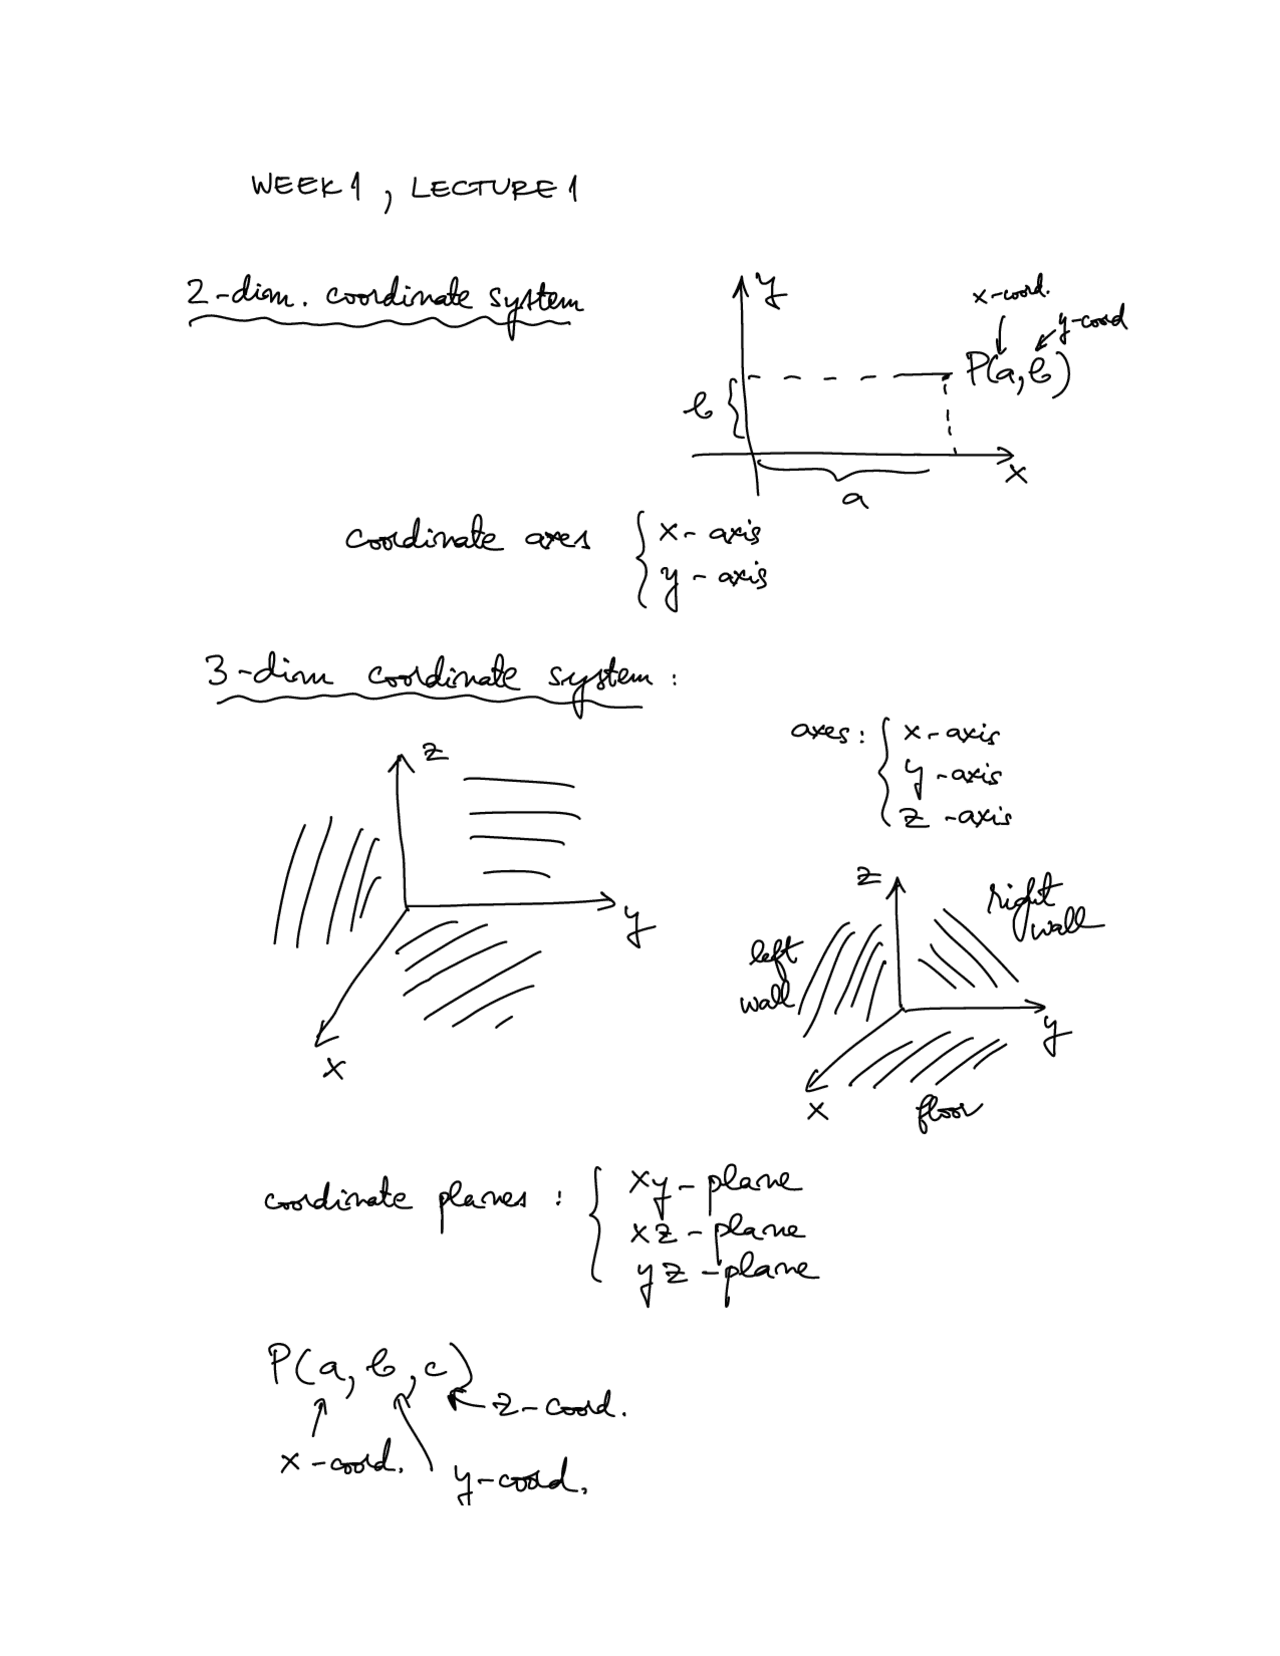 WEEK 1, LECTURE 1
2-dim. coordinate system
y
x-coord.
y-coord
P(a, b)
b
x
a
coordinate axes { x-axis
y-axis
3-dim coordinate system:
axes: { x-axis
y-axis
z-axis
z
y
x
z
right
wall
left
wall
y
x
floor
coordinate planes: { xy-plane
xz-plane
yz-plane
P(a, b, c)
z-coord.
x-coord.
y-coord.